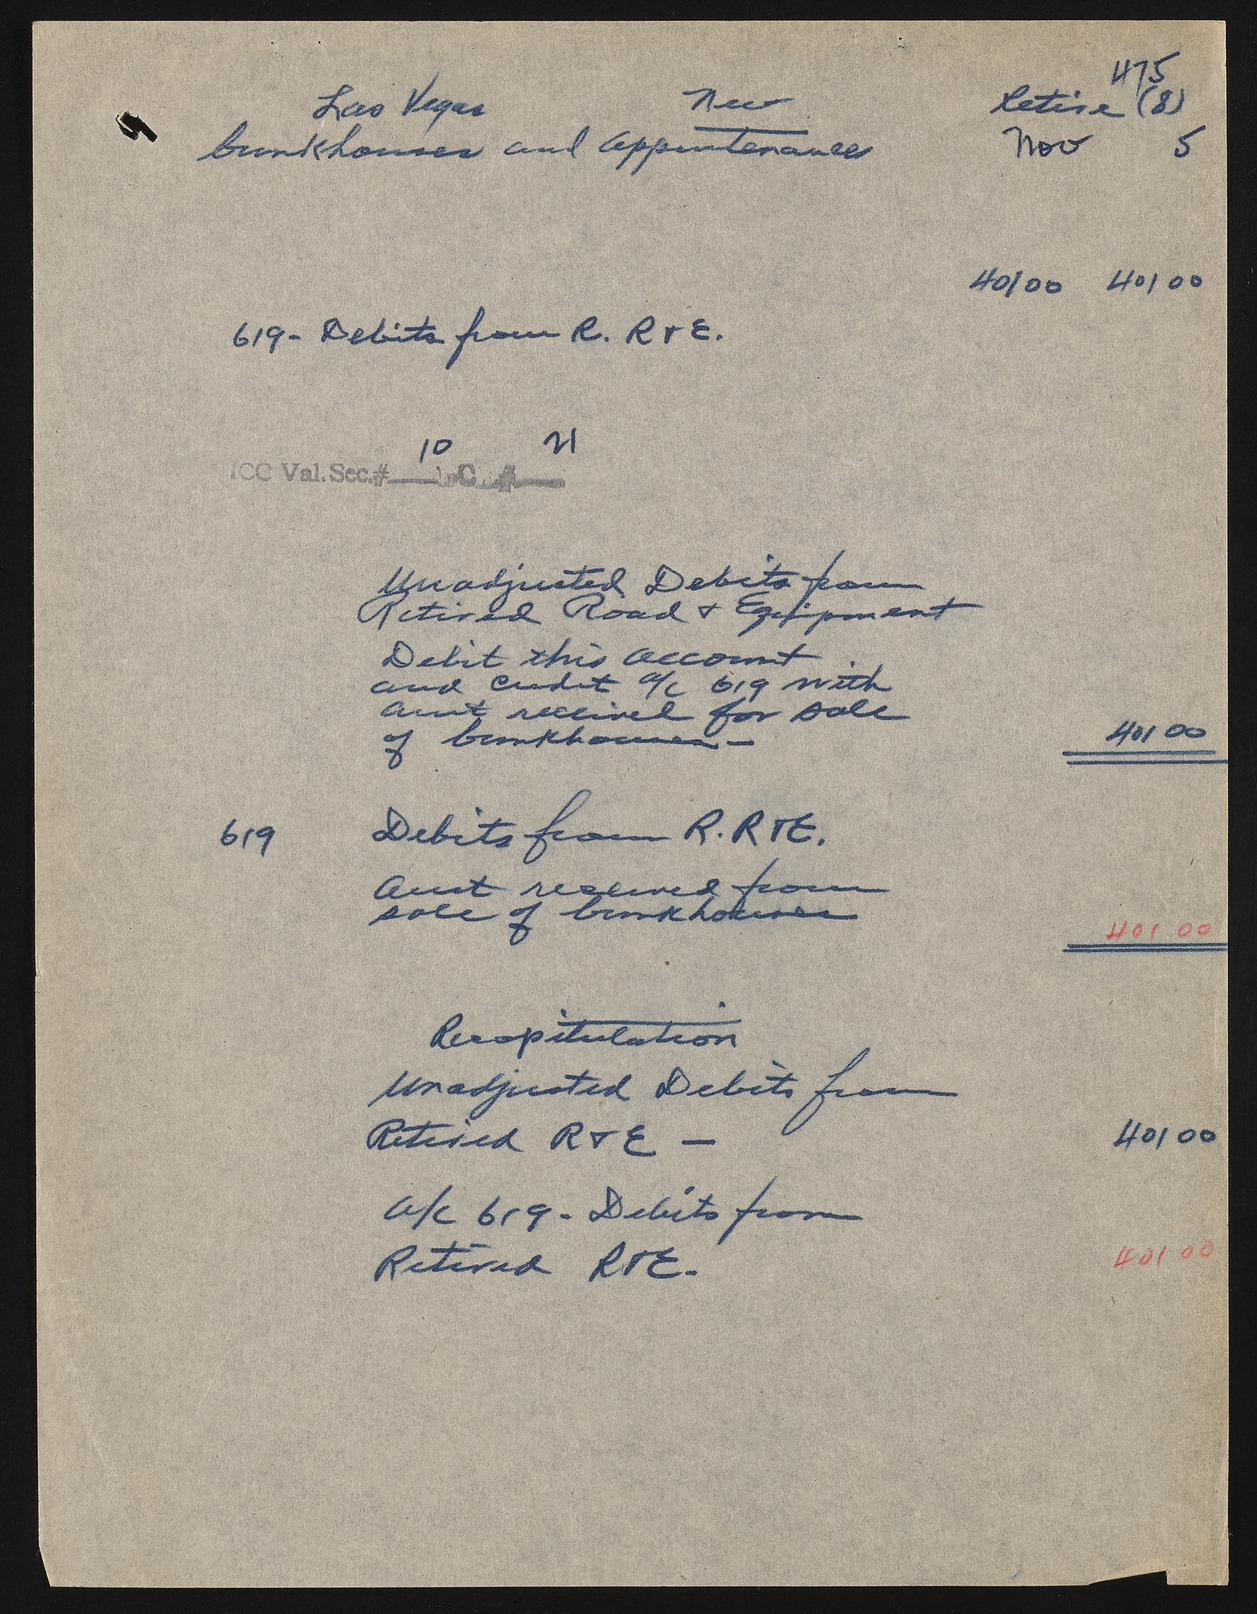 475
Las Vegas New Retire (8)
bunkhouses and appurtenances Nov 5
40100 40100
619- Debits from R. R & E.
10 21
ICC Val. Sec.#
Unadjusted Debits from
Retired Road & Equipment
Debit this account
and credit a/c 619 with
amt received for sale
of bunkhouses -
40100
619 Debits from R. R & E.
amt received from
sale of bunkhouses
401 00
Recapitulation
Unadjusted Debits from
Retired R & E - 401 00
a/c 619 - Debits from
Retired R & E. 401 00